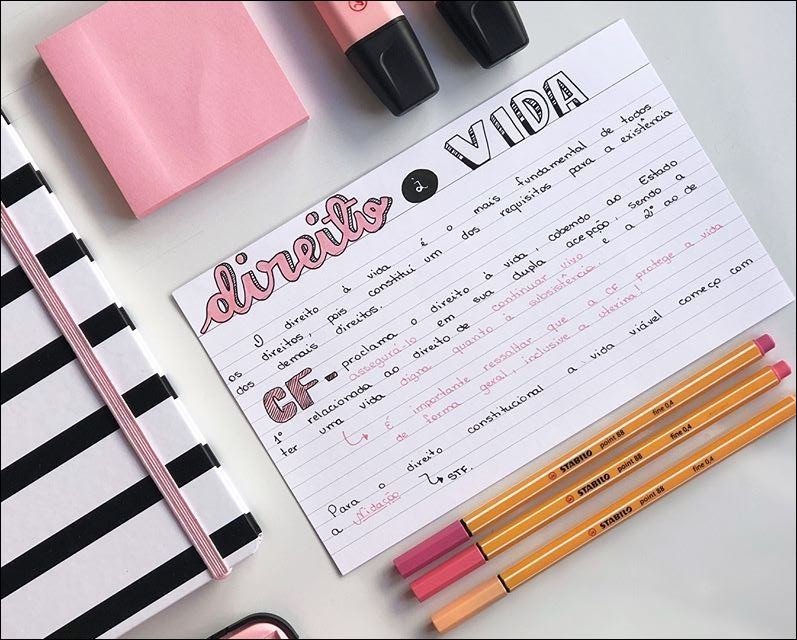 direito à VIDA
O direito à vida é o mais fundamental de todos
os direitos, pois constitui um dos requisitos para a existência
dos demais direitos.
CF- proclama o direito à vida, cabendo ao Estado
assegurá-lo em sua dupla acepção, sendo a
1ª relacionada ao direito de continuar vivo e a 2ª ao de
ter uma vida digna quanto à subsistência.
↳ É importante ressaltar que a CF protege a vida
de forma geral, inclusive a uterina!
Para o direito constitucional a vida viável começa com
a Nidação
↳ STF.
STABILO point 88 fine 0,4
STABILO point 88 fine 0,4
STABILO point 88 fine 0,4